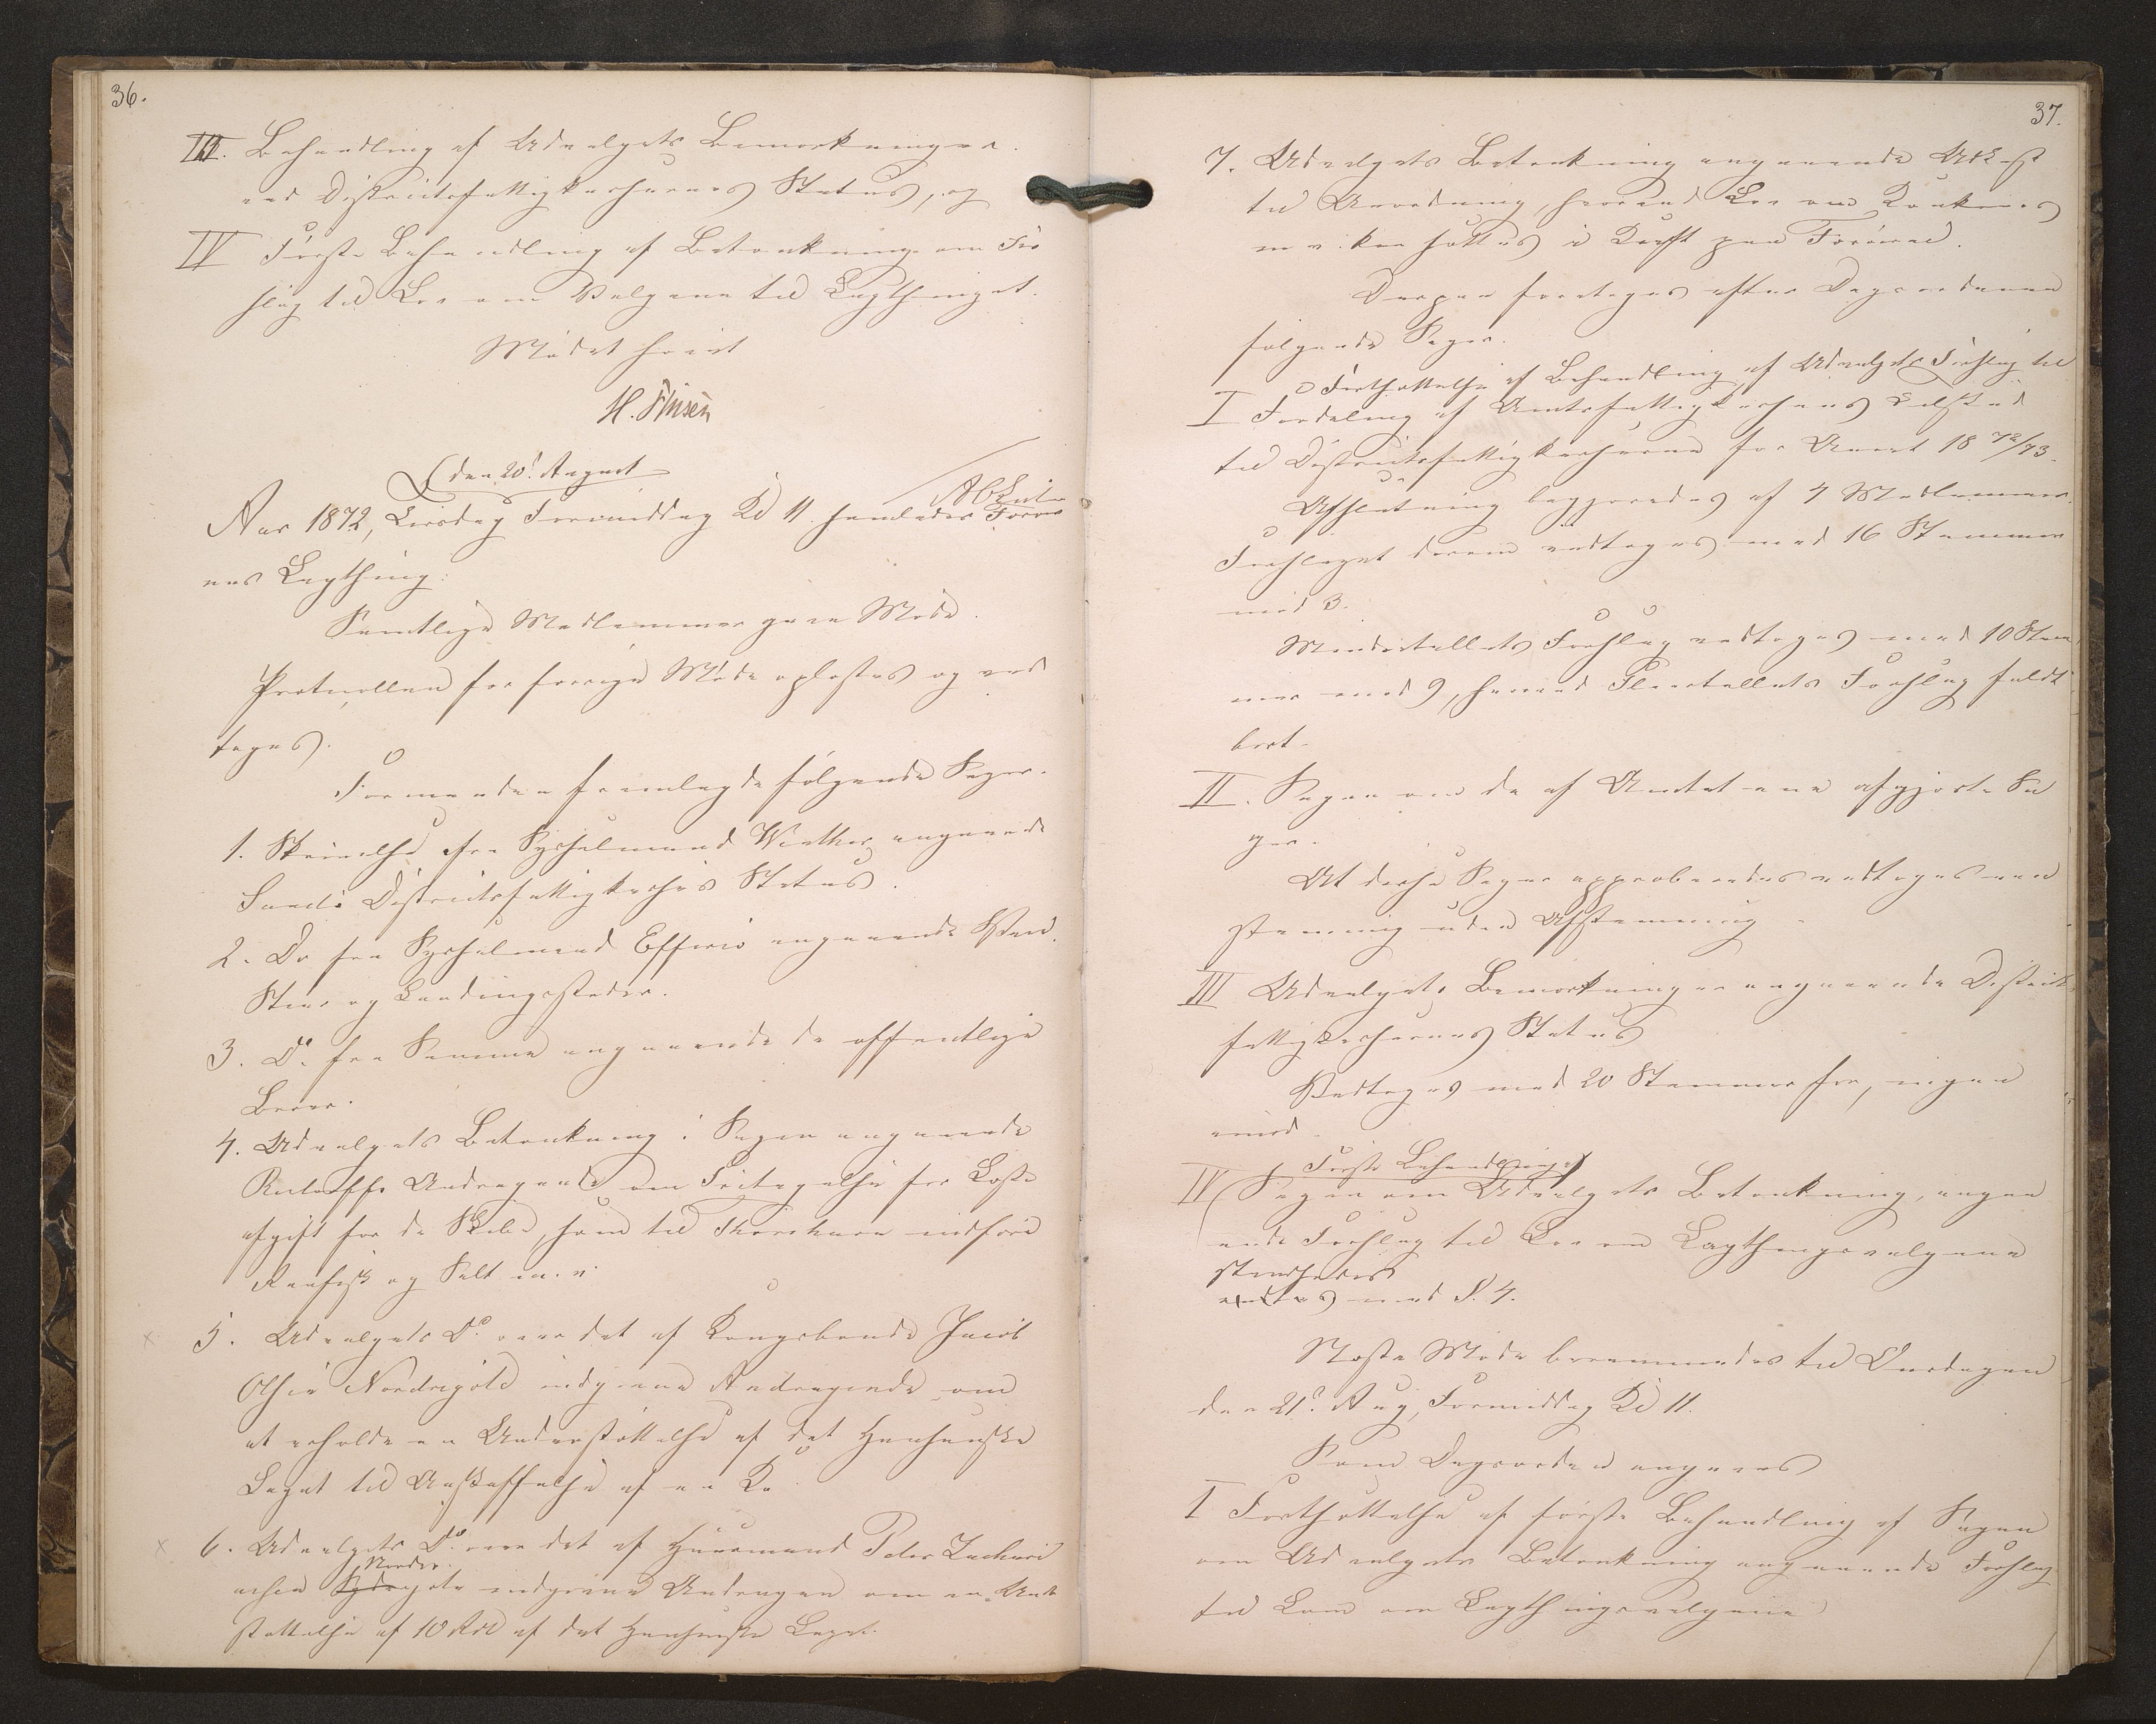 36.
III. Behandling af Udvalgets Bemærkninger
ved Districtsfattigkassernes Status, og
IV Første Behandling af Betænkning om For
slag til Lov om Valgene til Lagthinget.
Mødet hævet
H. Finsen
den 20de August
Aar 1872, Tirsdag Formiddag Kl 11 samledes Færø
ernes Lagthing.
Samtlige Medlemmer gave Møde.
Protocollen for forrige Møde oplæstes og ved
toges.
Formanden fremlagde følgende Sager.
1. Skrivelse fra Sysselmand Winther angaaende
Sandø Districtsfattigkasses Status.
2. Do fra Sysselmand Effersø angaaende
og Landingssteder.
3. Do. fra Samme angaaende de offentlige
4. Udvalgets Betænkning i Sagen angaaende
Andragende om Fritagelse for
afgift for de Skibe, som til Thorshavn indføre
Raafisk og Salt m. v.
5. Udvalgets Do. over det af Kongsbonde Jacob
Olsen Nordregøte indgivne Andragende om
at erholde en Understøttelse af det Hansenske
Legat til Anskaffelse af en Ko
6. Udvalgets Do. over det af Huusmand Peter Zachari
Nordre
asen Sydregøte indgivne Andragen om en Under
støttelse af 10 Rdl af det Hansenske Legat.
37.
7. Udvalgets Betænkning angaaende Udkast
til Anordning, hvorved Lov om Konkurs
m v. kan sættes i Kraft paa Færøerne.
Derpaa foretoges efter Dagsordenen
følgende Sager.
Fortsættelse af Behandling af Udvalgets Forslag til
I Fordeling af Amtsfattigkassens Tilskud
til Districtsfattigkasserne for Aaret 1872/73.
Afslutning begjæredes af 4 Medlemmer.
Forslaget derom vedtoges med 16 Stemmer
mod 3.
Mindretallets Forslag vedtoges med 10 Stem
mer mod 9, hvorved Fleertallets Forslag faldt
bort.
II. Sagen om de af Amtet ene afgjorte Sa
ger.
At disse Sager approberedes vedtoges een
stemmig uden Afstemning
III Udvalgets Bemærkninger angaaende Districts
fattigkassernes Status
Vedtoges med 20 Stemmer for, ingen
imod
Første Behandling af
IV Sagen om Udvalgets Betænkning, angaa
ende Forslag til Lov om Lagthingsvalgene
standsedes
med §. 4.
Næste Møde berammedes til Onsdagen
den 21de Aug, Formiddag Kl 11.
Som Dagsorden angaves
I Fortsættelse af første Behandling af Sagen
om Udvalgets Betænkning angaaende Forslag
til Lov om Lagthingsvalgene